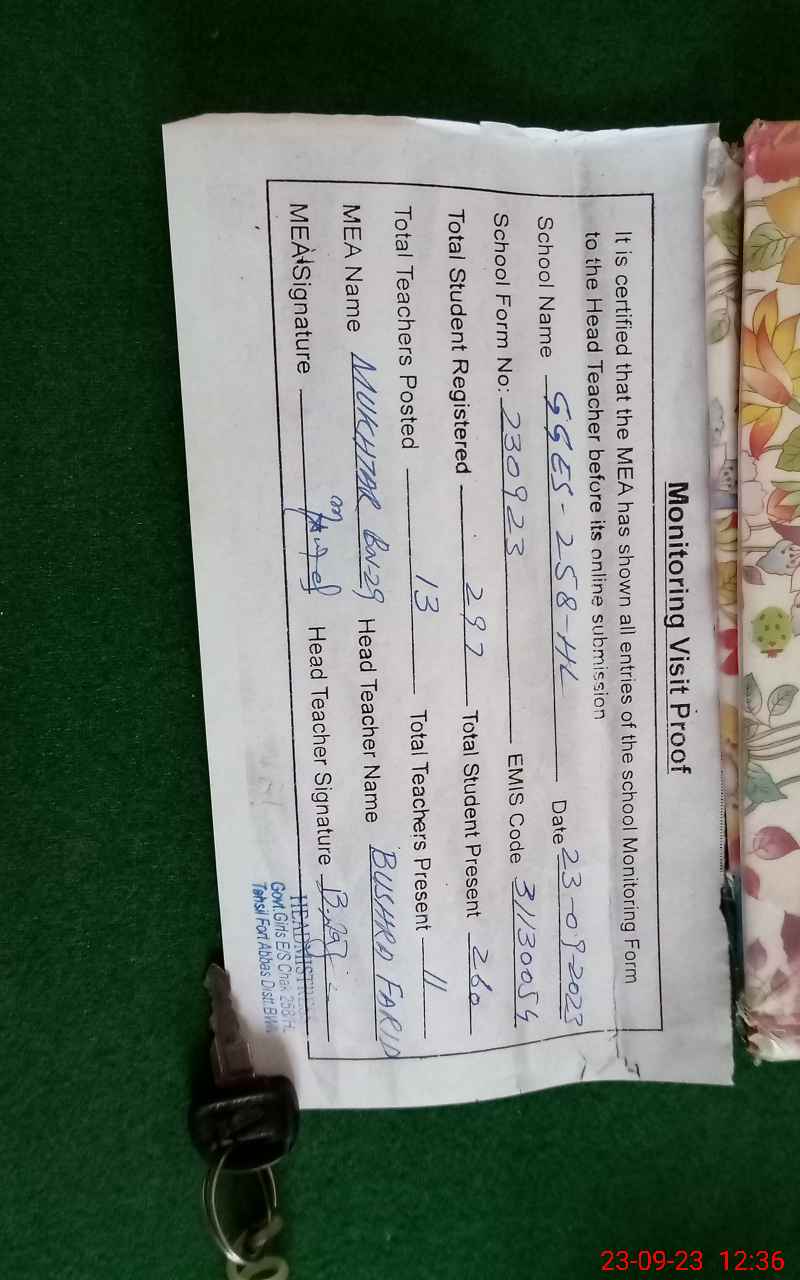 Monitoring Visit Proof
It is certified that the MEA has shown all entries of the school Monitoring Form
to the Head Teacher before its online submission
School Name GGES-258-HL Date 23-09-2023
School Form No: 230923 EMIS Code 31130054
Total Student Registered 297 Total Student Present 260
Total Teachers Posted 13 Total Teachers Present 11
MEA Name MUKHTAR BN-29 Head Teacher Name BUSHRA FARID
MEA Signature Head Teacher Signature
HEADMISTRESS
Govt.Girls E/S Chak 258/HL
Tehsil Fort Abbas Distt.BWN
23-09-23 12:36